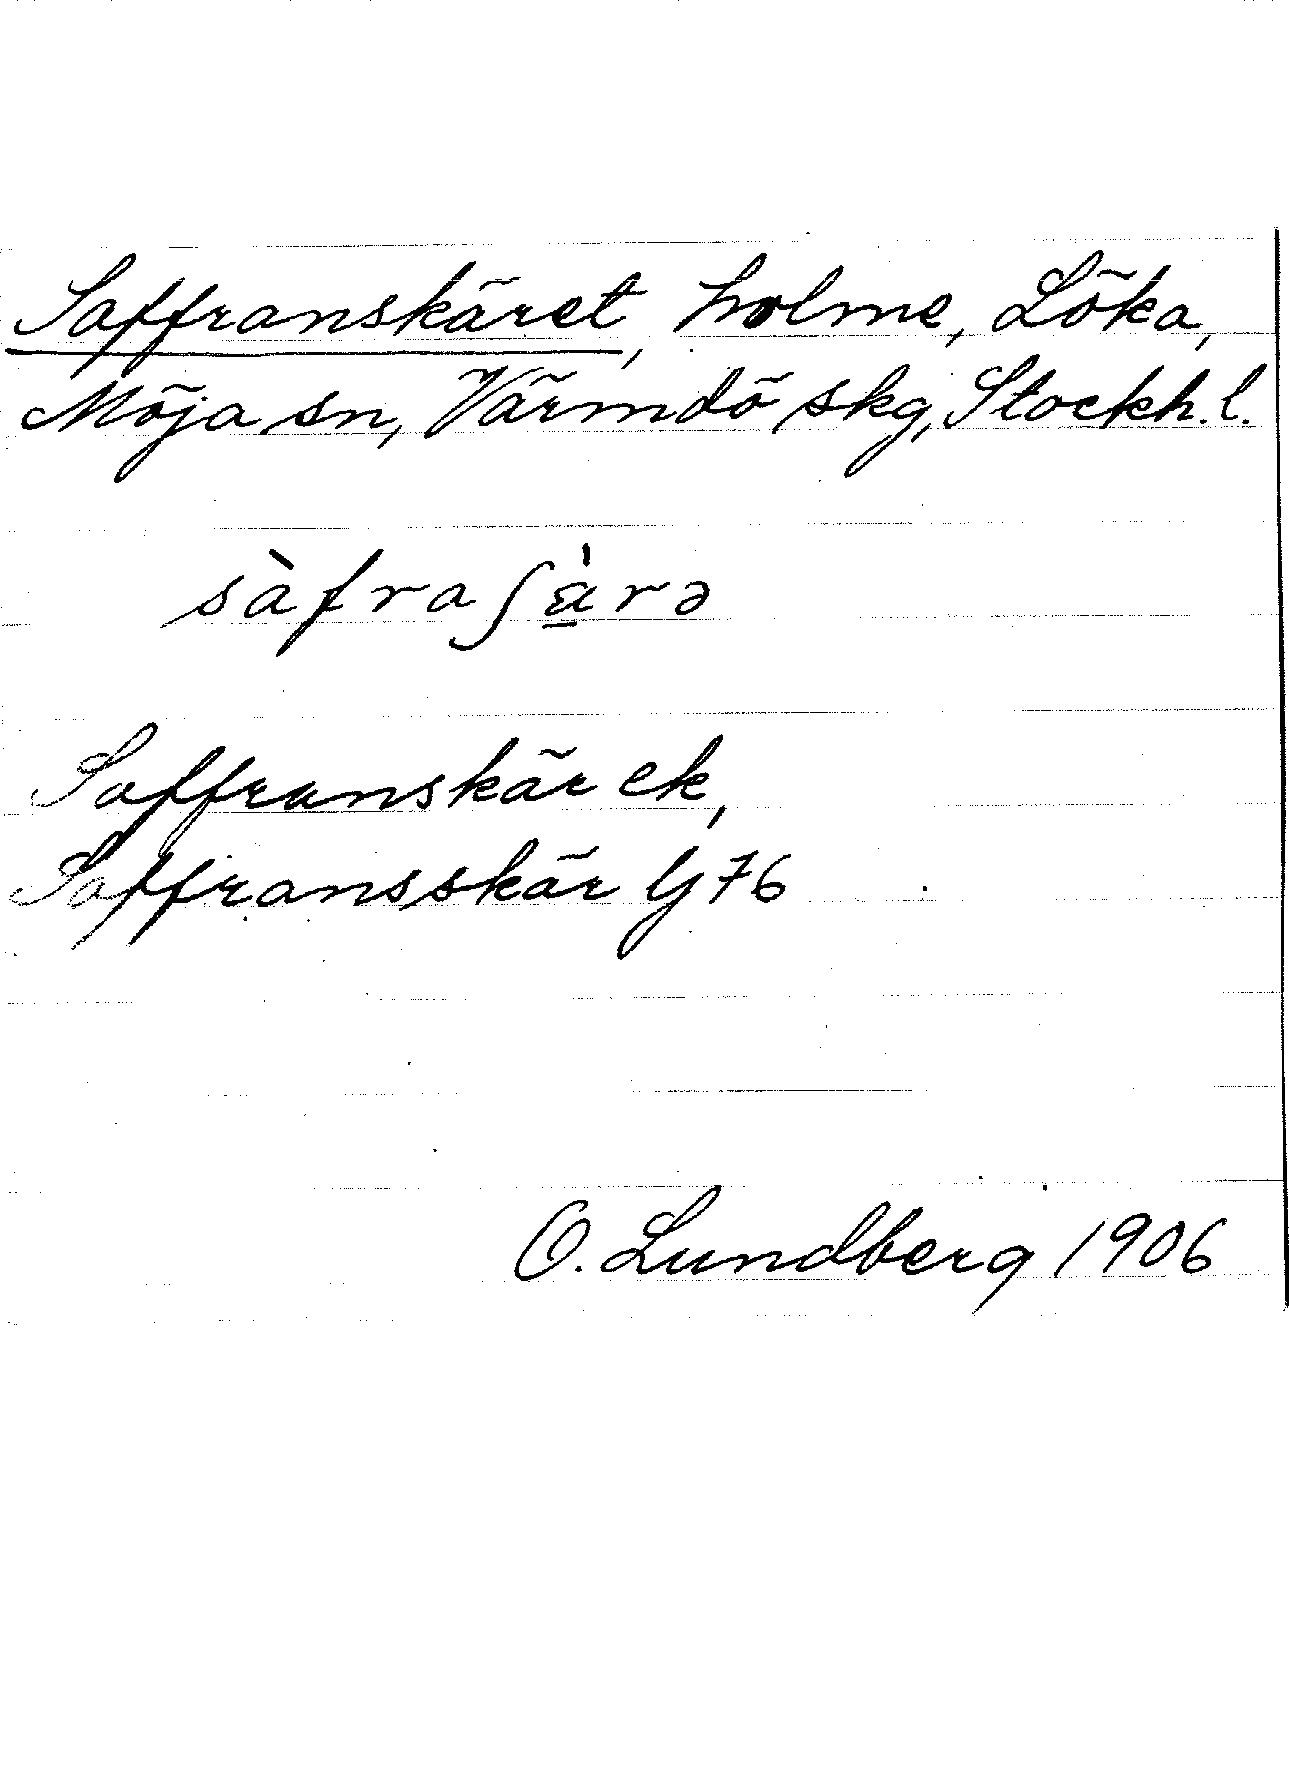 Saffranskäret, holme, Löka,
Möja sn, Värmdö skg, Stockh. l.
sàfraʃä̀rə
Saffranskär ek,
Saffransskär G 76
O. Lundberg 1906